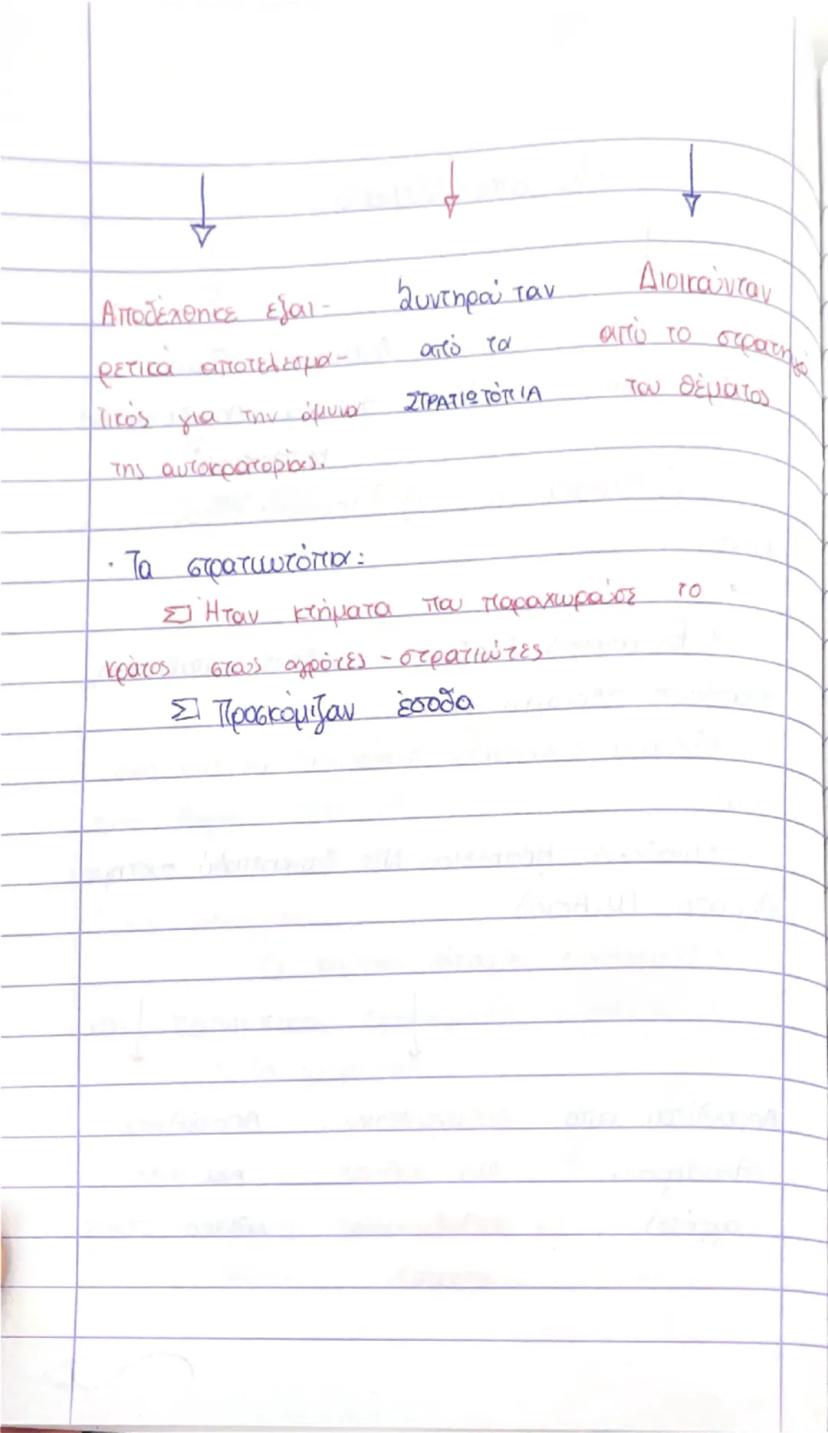 Αποδέχθηκε εξαι-
ρετικά αποτελεσμα-
τικός για την άμυνα
της αυτοκρατορίας.
Συντηρούταν
από τα
ΣΤΡΑΤΙΩΤΟΠΙΑ
Διοικούνταν
από το στρατηγό
του θέματος
· Τα στρατιωτόπια:
Σ Ήταν κτήματα που παραχωρούσε το
κράτος στους αγρότες - στρατιώτες
Σ Προσκόμιζαν έσοδα